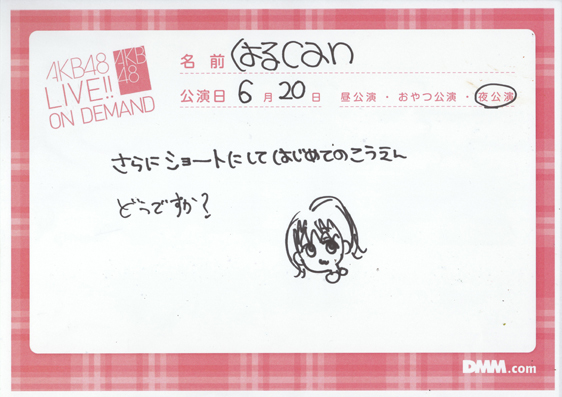 AKB48
LIVE!!
ON DEMAND
AKB
48
名前 はるcan
公演日 6月20日 昼公演・おやつ公演・夜公演
さらにショートにしてはじめてのこうえん
どうですか?
DMM.com